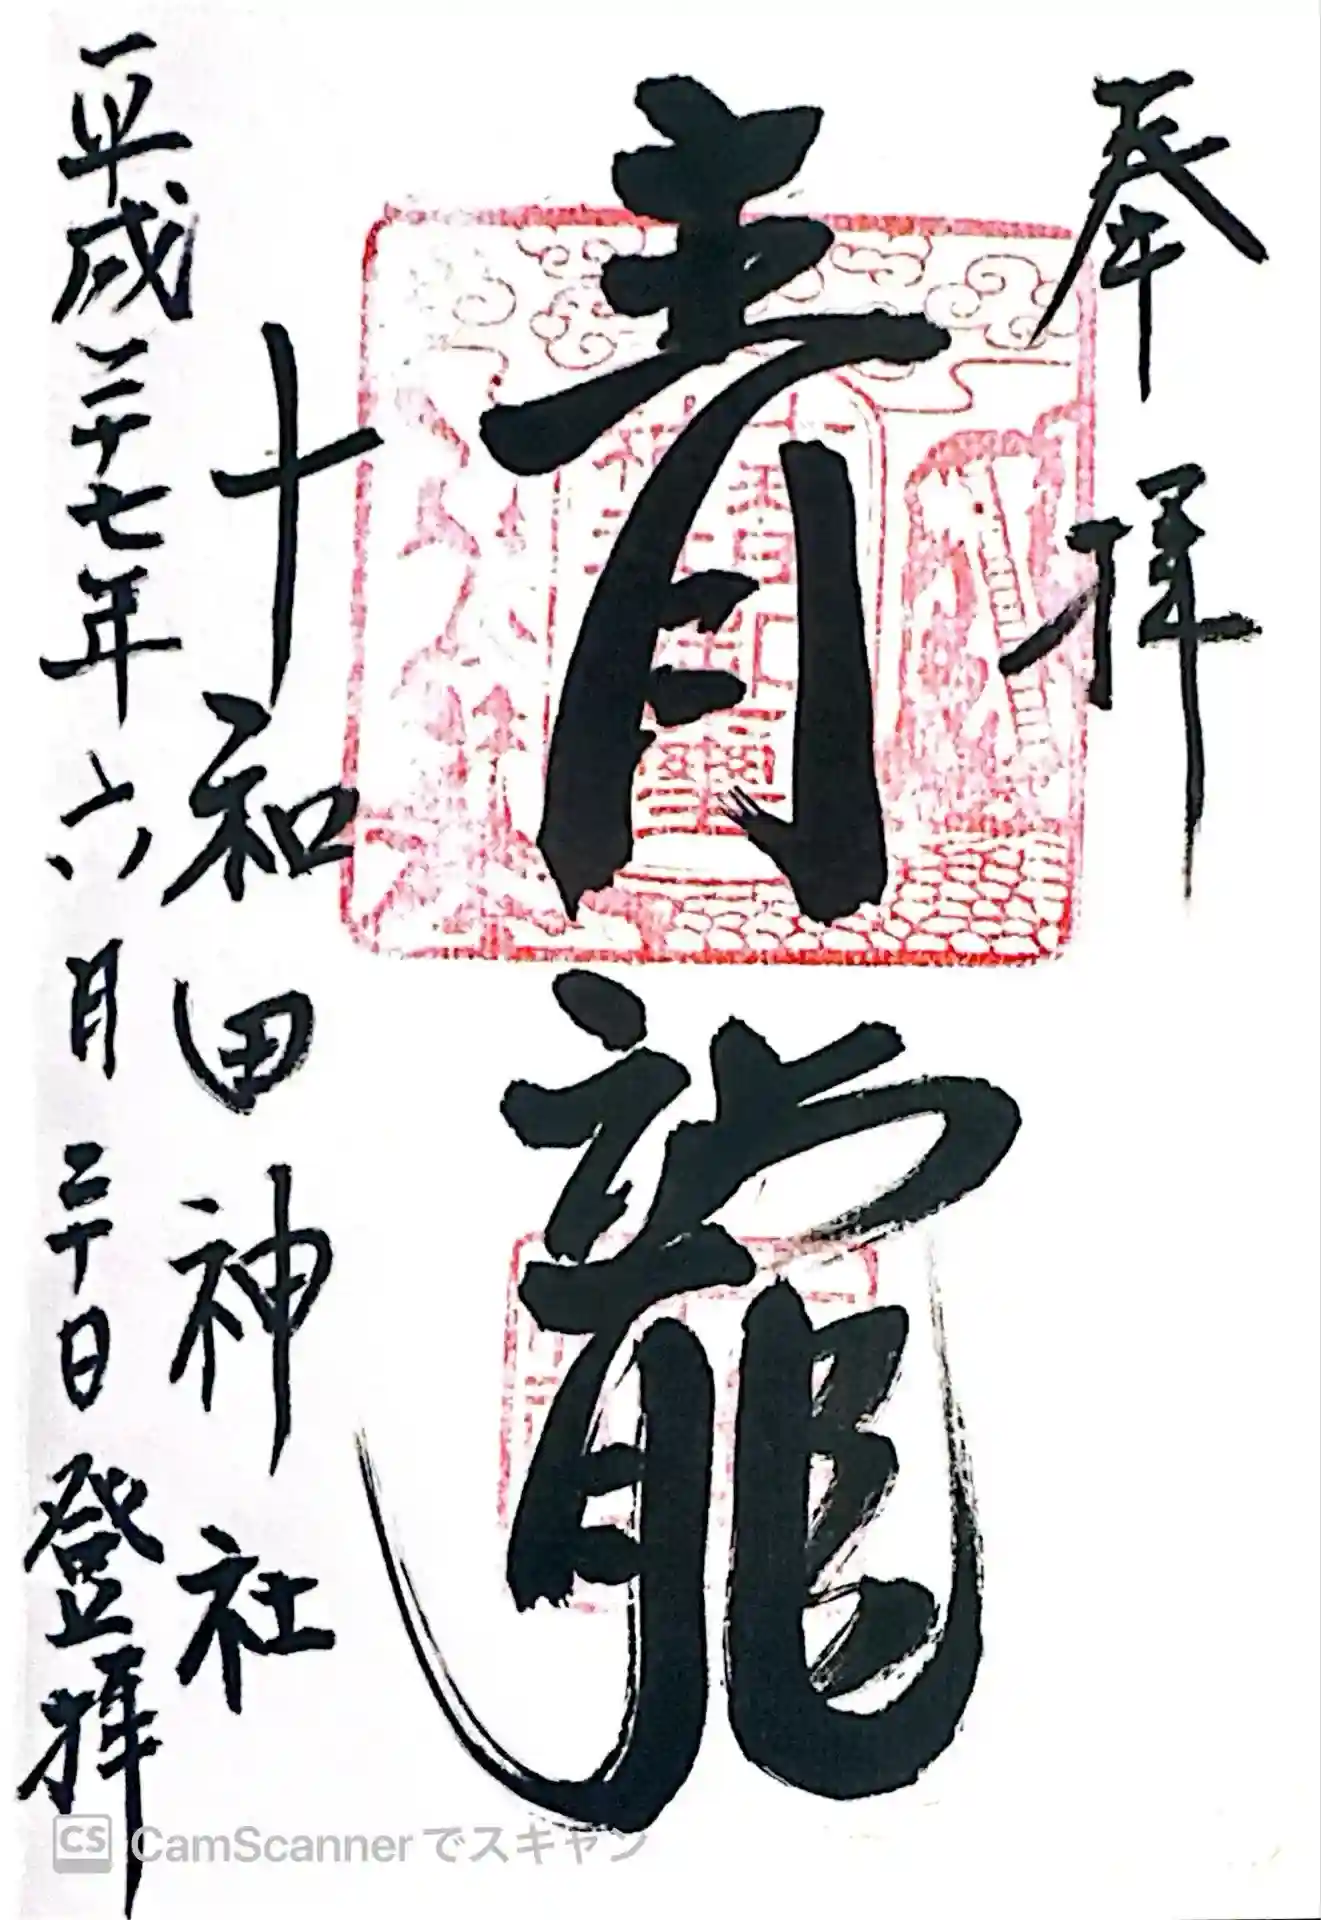 奉拝
青龍
十和田神社
平成二十七年六月二十日登拝
CS CamScannerでスキャン